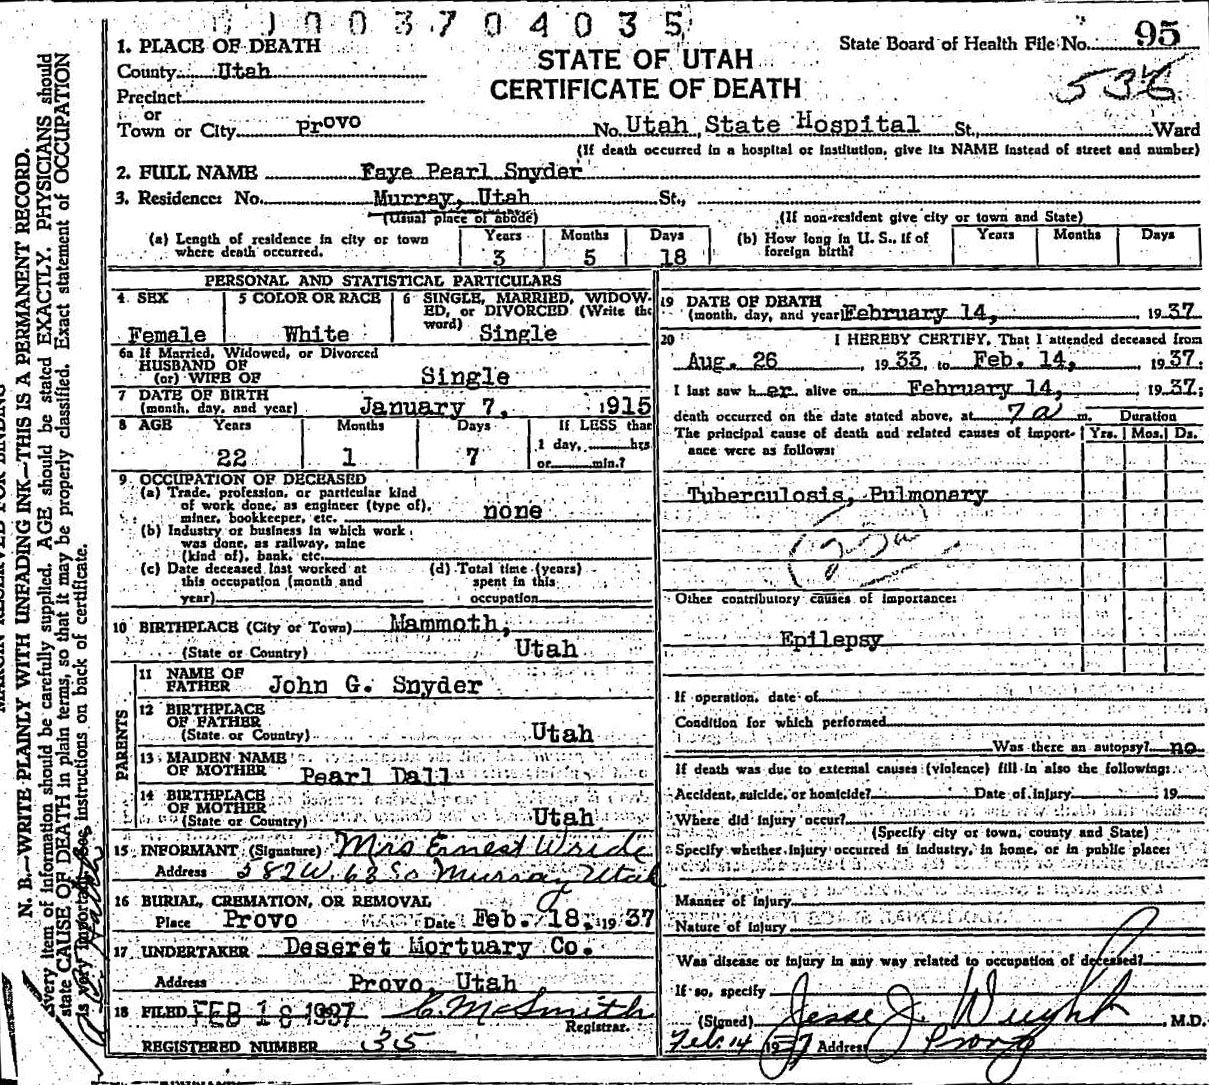 003704035
1. PLACE OF DEATH
STATE OF UTAH
CERTIFICATE OF DEATH
State Board of Health File No. 95
536
County Utah
Precinct
or
Town or City Provo No. Utah State Hospital St., Ward
(If death occurred in a hospital or institution, give its NAME instead of street and number)
2. FULL NAME Faye Pearl Snyder
3. Residence: No. Murray, Utah St.,
(Usual place of abode) (If non-resident give city or town and State)
(a) Length of residence in city or town where death occurred. Years 3 Months 5 Days 18
(b) How long in U. S., if of foreign birth? Years Months Days
PERSONAL AND STATISTICAL PARTICULARS
4 SEX Female
5 COLOR OR RACE White
6 SINGLE, MARRIED, WIDOWED, or DIVORCED (Write the word) Single
6a If Married, Widowed, or Divorced
HUSBAND OF
(or) WIFE OF Single
7 DATE OF BIRTH
(month, day, and year) January 7, 1915
8 AGE Years 22 Months 1 Days 7
If LESS than
1 day, hrs
or min.?
9 OCCUPATION OF DECEASED
(a) Trade, profession, or particular kind
of work done, as engineer (type of),
miner, bookkeeper, etc. none
(b) Industry or business in which work
was done, as railway, mine
(kind of), bank, etc.
(c) Date deceased last worked at
this occupation (month and
year)
(d) Total time (years)
spent in this
occupation
10 BIRTHPLACE (City or Town) Mammoth,
(State or Country) Utah
PARENTS
11 NAME OF
FATHER John G. Snyder
12 BIRTHPLACE
OF FATHER
(State or Country) Utah
13 MAIDEN NAME
OF MOTHER Pearl Dall
14 BIRTHPLACE
OF MOTHER
(State or Country) Utah
15 INFORMANT (Signature) Mrs Ernest Wride
Address 582 W. 63 So Murray Utah
16 BURIAL, CREMATION, OR REMOVAL
Place Provo Date Feb. 18, 1937
17 UNDERTAKER Deseret Mortuary Co.
Address Provo, Utah
18 FILED FEB 18 1937 C. McSmith
Registrar.
REGISTERED NUMBER 35
19 DATE OF DEATH
(month, day, and year) February 14, 1937
20 I HEREBY CERTIFY, That I attended deceased from
Aug. 26 1933, to Feb. 14, 1937.
I last saw h er alive on February 14, 1937;
death occurred on the date stated above, at 7 a m. Duration
The principal cause of death and related causes of importance were as follows: Yrs. Mos. Ds.
Tuberculosis, Pulmonary
Other contributory causes of importance:
Epilepsy
If operation, date of
Condition for which performed
Was there an autopsy? no
If death was due to external causes (violence) fill in also the following:
Accident, suicide, or homicide? Date of injury 19
Where did injury occur?
(Specify city or town, county and State)
Specify whether injury occurred in industry, in home, or in public place:
Manner of injury
Nature of injury
Was disease or injury in any way related to occupation of deceased?
If so, specify
(Signed) Jesse J. Wright, M.D.
Feb. 14 1937 Address Provo
N. B.—WRITE PLAINLY WITH UNFADING INK—THIS IS A PERMANENT RECORD.
Every item of information should be carefully supplied. AGE should be stated EXACTLY. PHYSICIANS should
state CAUSE OF DEATH in plain terms, so that it may be properly classified. Exact statement of OCCUPATION
is very important. See instructions on back of certificate.